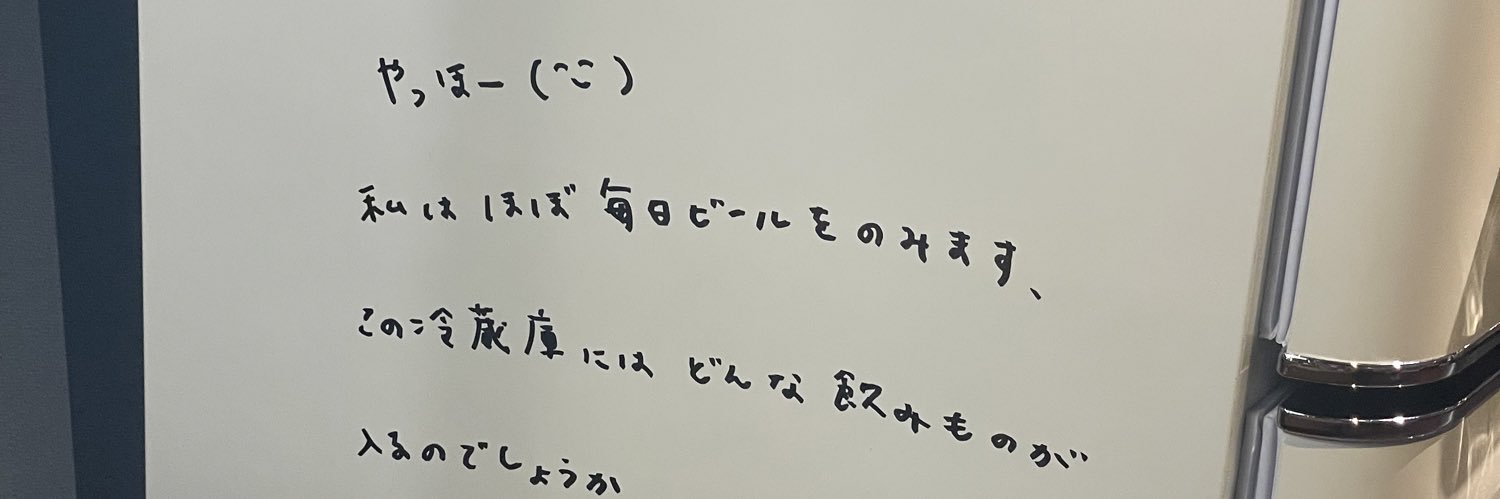 やっほー(^^)
私はほぼ毎日ビールをのみます、
この冷蔵庫にはどんな飲みものが
入るのでしょうか